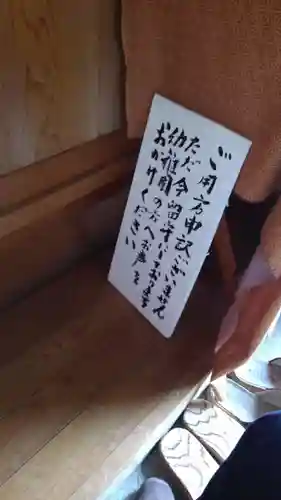 ご用の方申訳ございません
ただ今留守にしております
幼稚園の方へお声を
おかけください